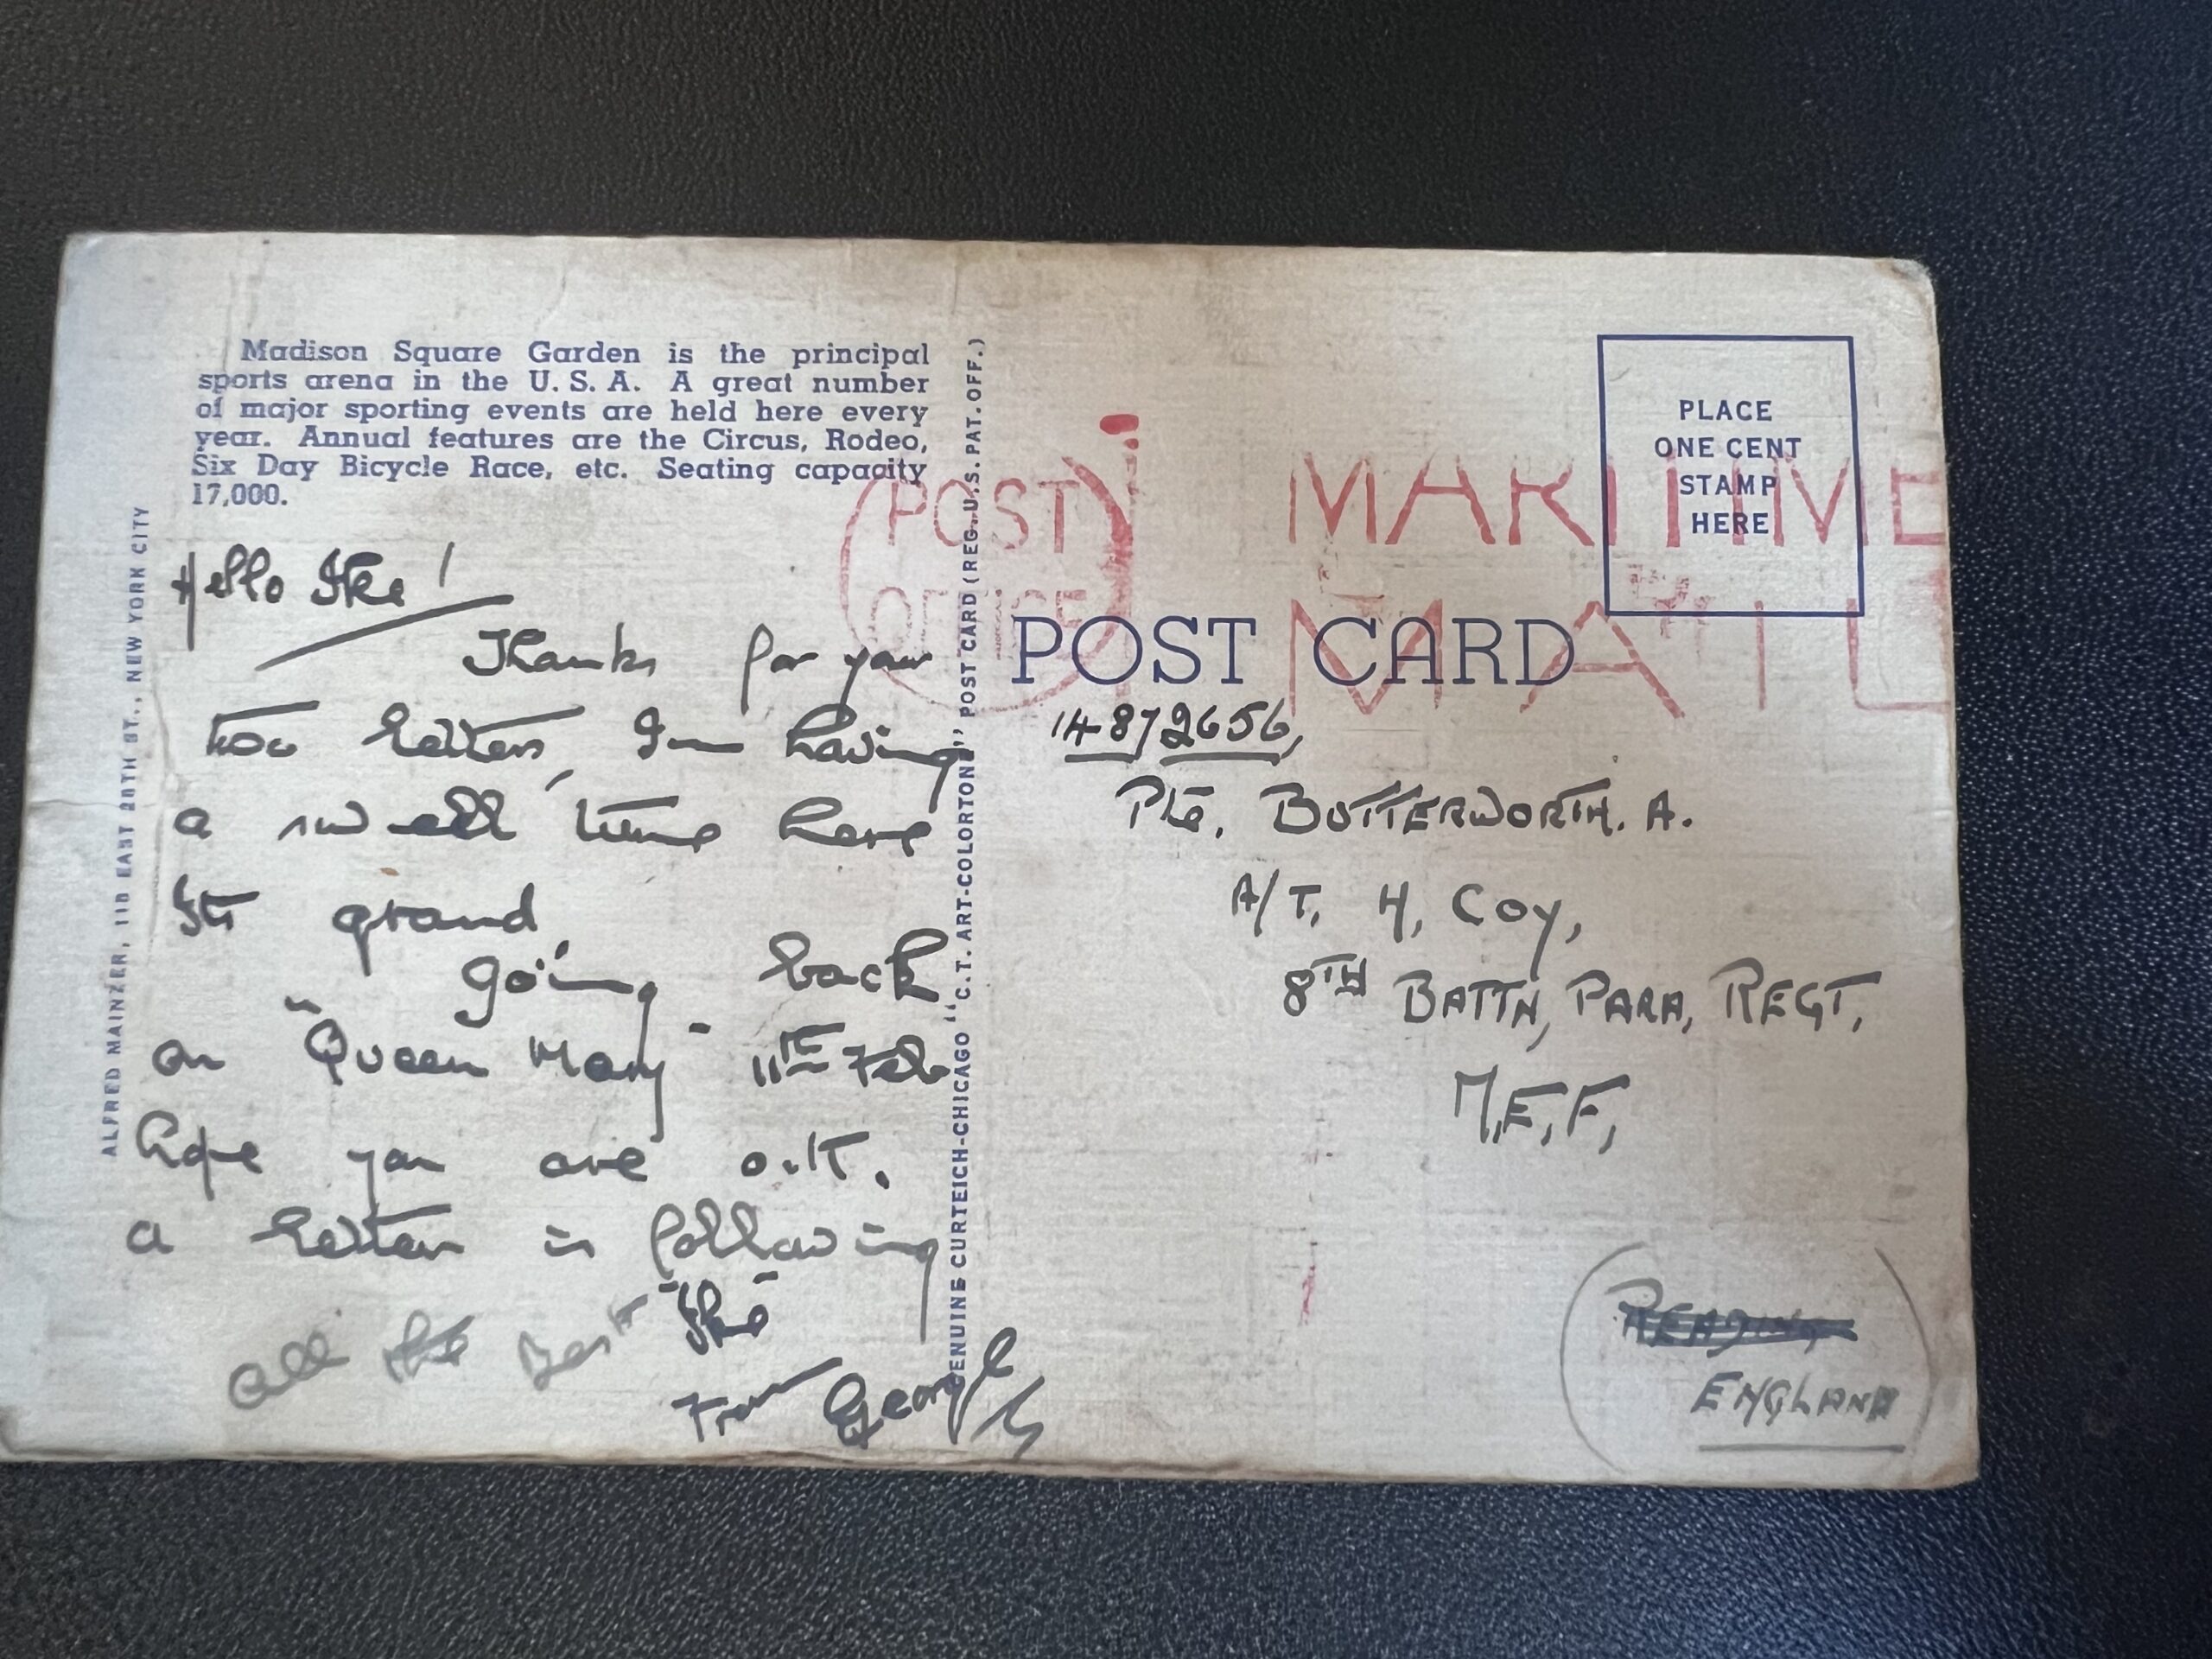 Madison Square Garden is the principal
sports arena in the U. S. A. A great number
of major sporting events are held here every
year. Annual features are the Circus, Rodeo,
Six Day Bicycle Race, etc. Seating capacity
17,000.
ALFRED MAINZER, 118 EAST 28TH ST., NEW YORK CITY
Hello Ike!
Thanks for your
two letters, I'm having
a swell time here
It's grand,
going back
on "Queen Mary" 11TH Feb
hope you are o.K.
a letter is following
All the Best "Ike"
From George
GENUINE CURTEICH-CHICAGO "C.T. ART-COLORTONE" POST CARD (REG. U.S. PAT. OFF.)
POST
OFFICE
MARITIME
MAIL
PLACE
ONE CENT
STAMP
HERE
POST CARD
14872656,
Pte. BUTTERWORTH. A.
A/T. H, Coy,
8TH BATTN, PARA, REGT,
M.E.F,
READING
ENGLAND